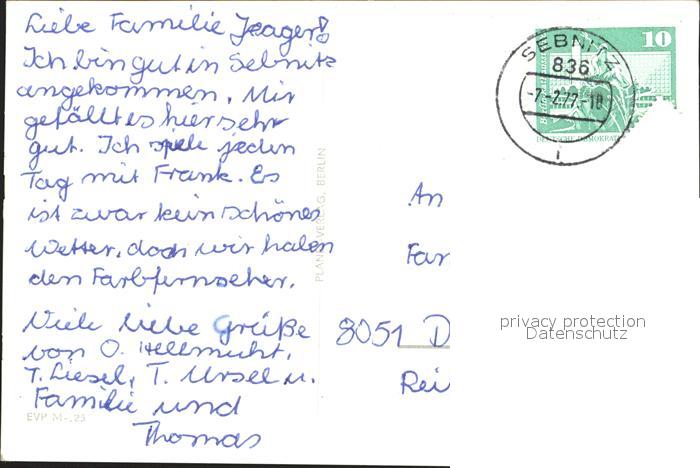 Liebe Familie Jeager!
Ich bin gut in Sebnitz
angekommen. Mir
gefällt es hier sehr
gut. Ich spiele jeden
Tag mit Frank. Es
ist zwar kein schönes
Wetter, doch wir haben
den Farbfernseher.
Viele liebe Grüße
von O. Hellmuht,
T. Liesel, T. Ursel u.
Familie und
Thomas
EVP M -.25
PLANET-VERLAG, BERLIN
SEBNITZ
836
-7.-2.77.-18
10
DEUTSCHE DEMOKRAT
An
Fam
8051 D
Rei
privacy protection
Datenschutz